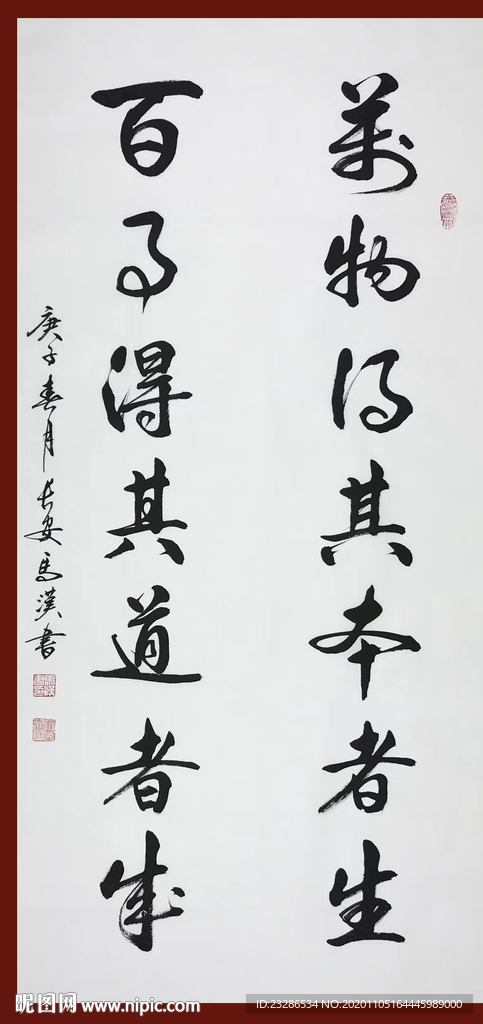 萬物得其本者生
百事得其道者成
庚子春月長安馬漢書
昵图网 www.nipic.com
ID:23286534 NO:20201105164445989000